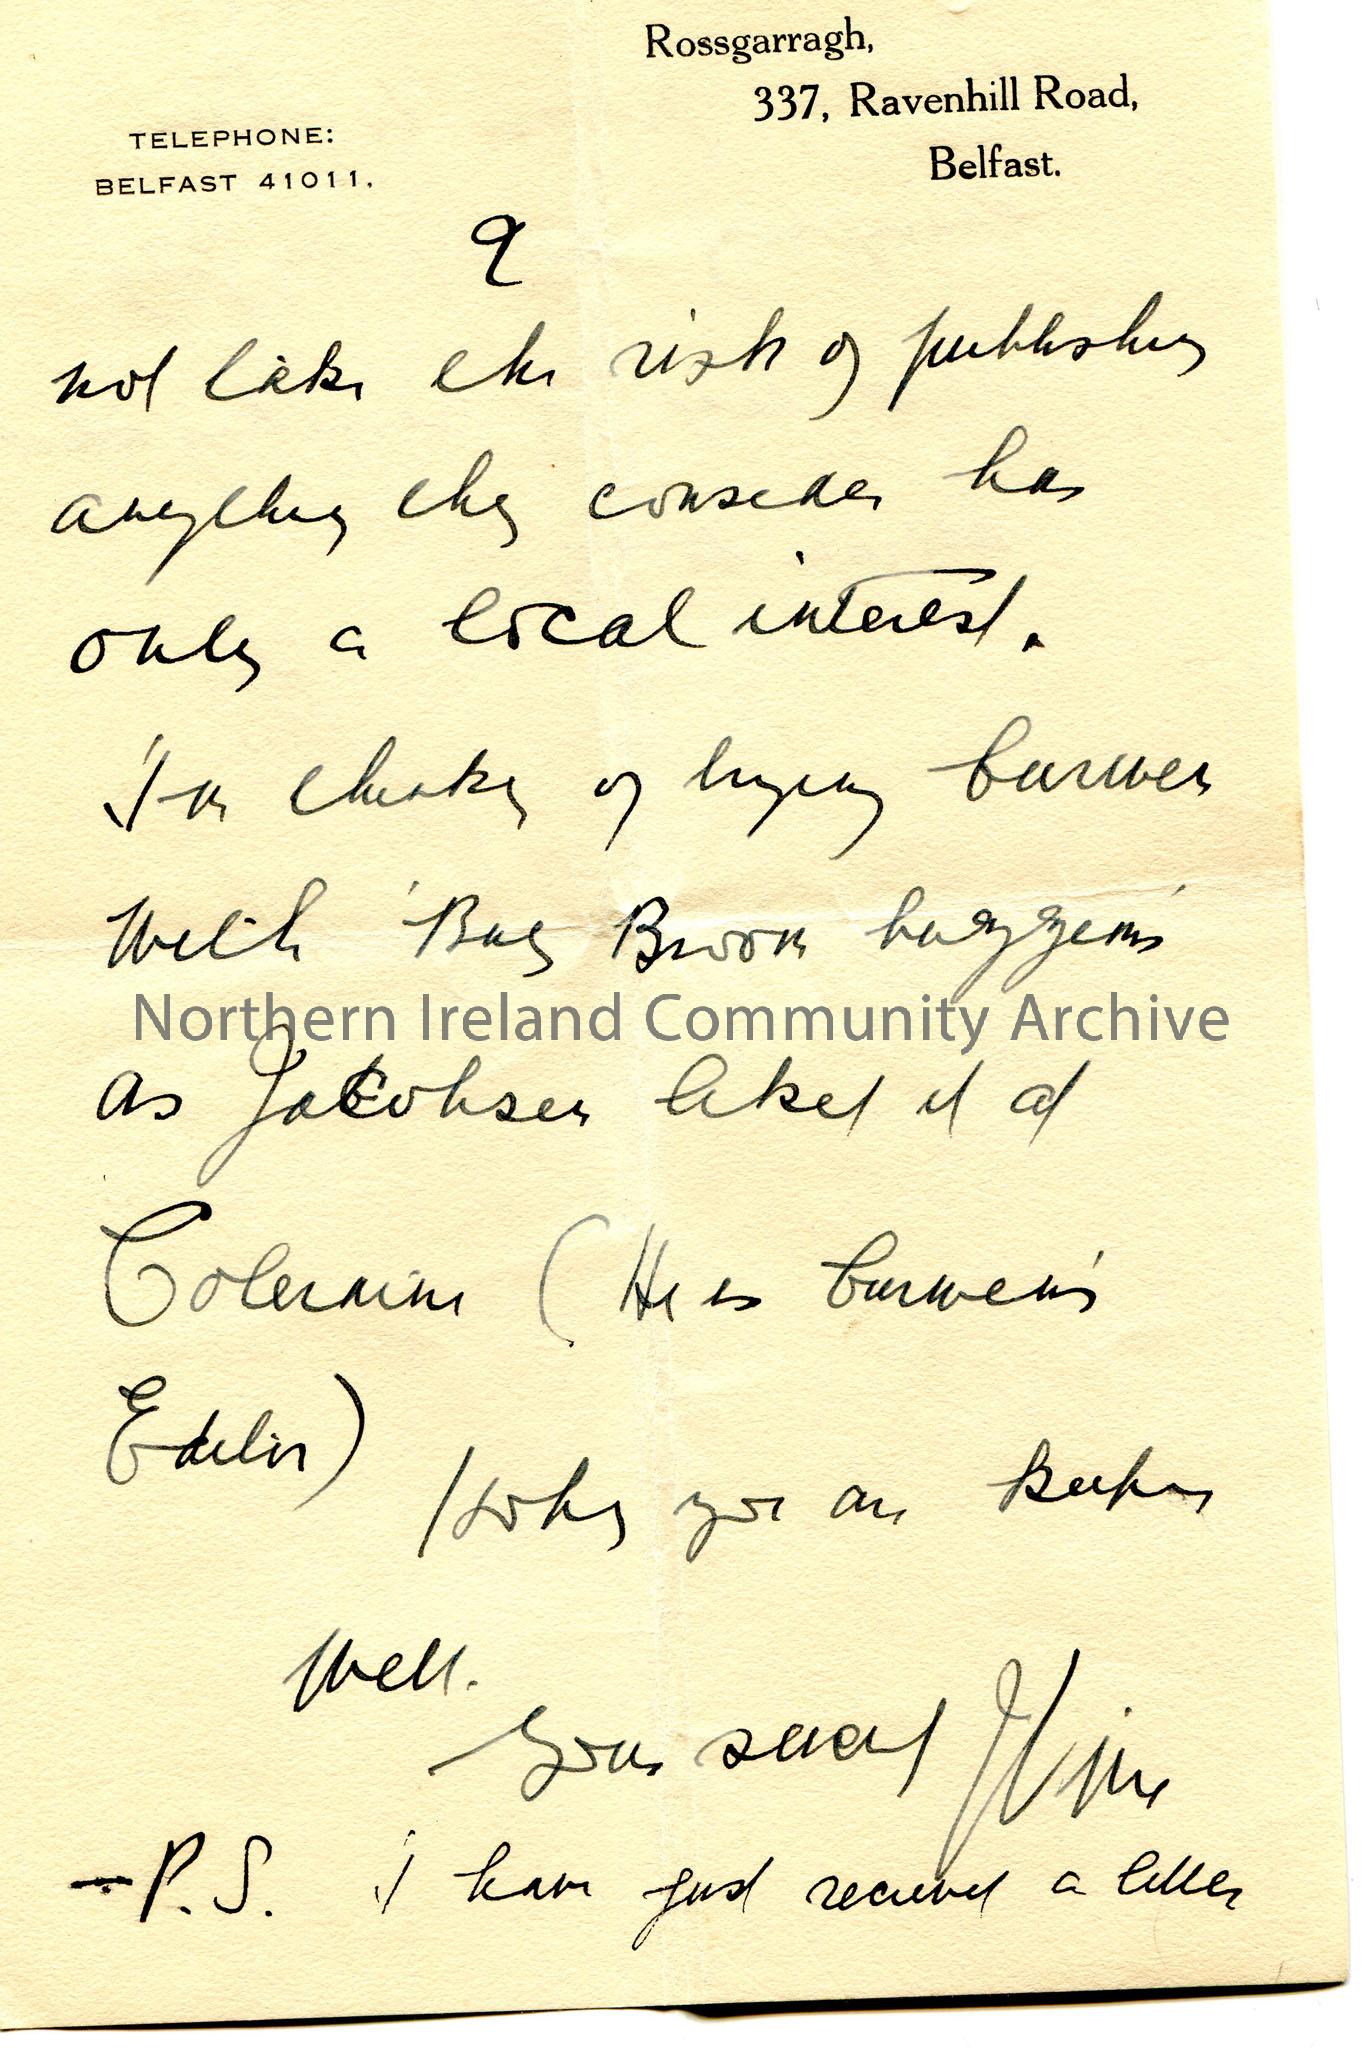 Rossgarragh,
337, Ravenhill Road,
Belfast.
TELEPHONE:
BELFAST 41011.
2
not take the risk of publishing
anything they consider has
only a local interest.
I'm thinking of trying Curwen
with 'Big Broon
Northern Ireland Community Archive
as Jacobsen liked it at
Coleraine (He is Curwen's
Editor)
Hoping you are Keeping
Well.
Yours sincerely
-P.S. I have just received a letter